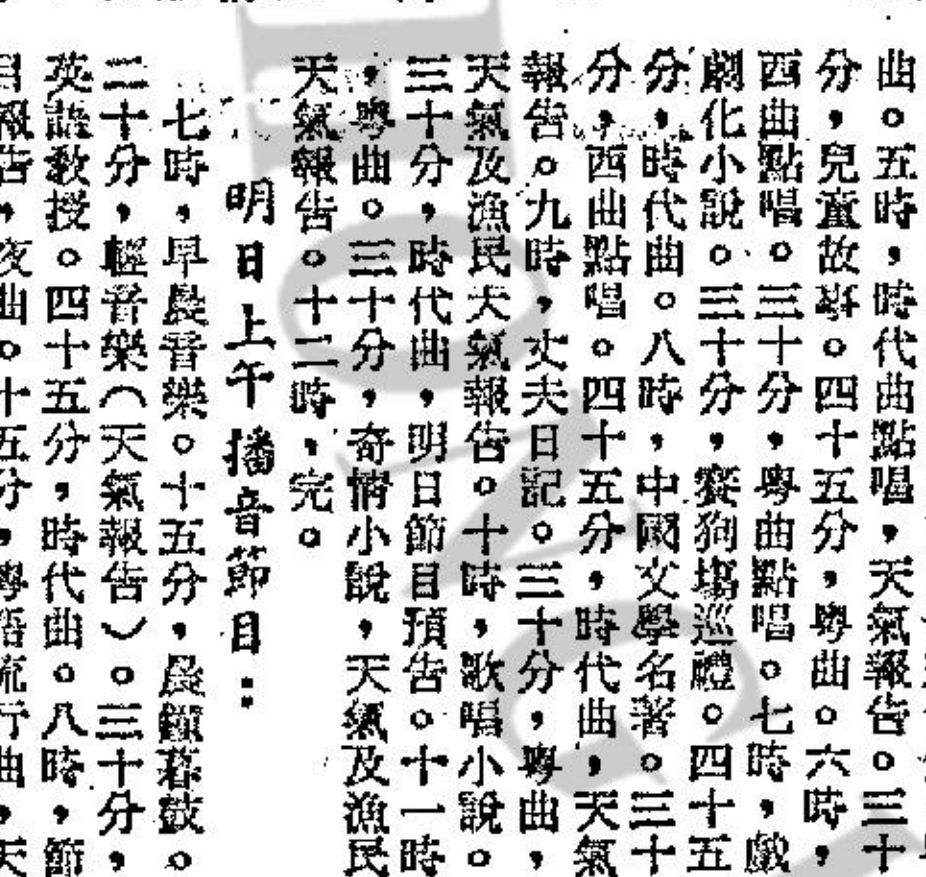 曲。五時，時代曲點唱，天氣報告。三十
分，兒童故事。四十五分，粵曲。六時，
西曲點唱。三十分，粵曲點唱。七時，戲
劇化小說。三十分，賽狗場巡禮。四十五
分，時代曲。八時，中國文學名著。三十
分，西曲點唱。四十五分，時代曲，天氣
報告。九時，丈夫日記。三十分，粵曲，
天氣及漁民天氣報告。十時，歌唱小說。
三十分，時代曲，明日節目預告。十一時
，粵曲。三十分，奇情小說，天氣及漁民
天氣報告。十二時，完。
明日上午播音節目：
七時，早晨音樂。十五分，晨鐘暮鼓。
二十分，輕音樂（天氣報告）。三十分，
英語教授。四十五分，時代曲。八時，節
目報告，夜曲。十五分，粵語流行曲，天